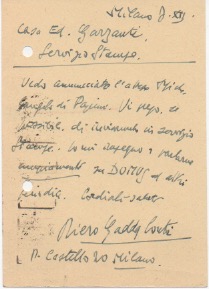 Milano 7. XII.
Casa Ed. Garzanti.
Servizio Stampa.
Vedo annunciato l'opera Mich
Angelo di Papini. Vi prego, se
possibile, di inviarmi in servizio
stampa. Io mi impegno a parlarne
ampiamente su DOMUS ed altri
periodici. Cordiali saluti
Piero Gadda Conti
P. Castello 20 Milano.